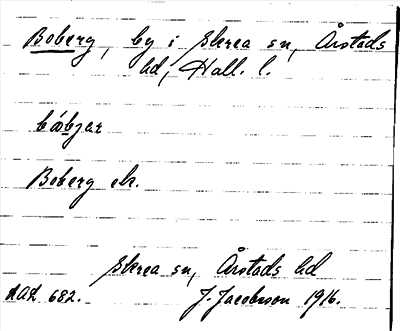 Boberg, by i Skrea sn, Årstads
hd, Hall. l.
Boberg ek.
Skrea sn, Årstads hd
682. J. Jacobsson 1916.